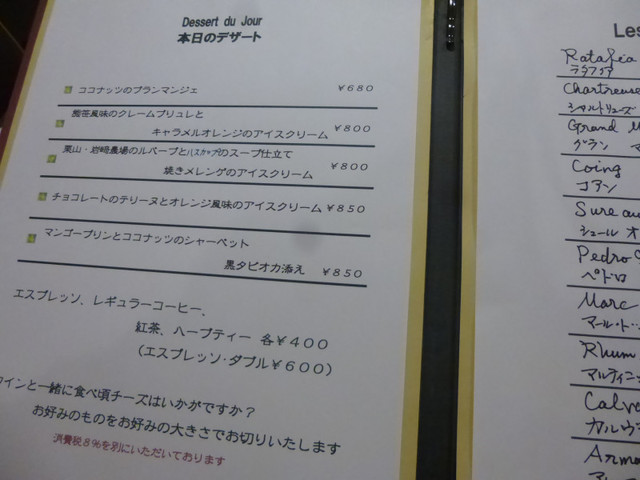 Dessert du Jour
本日のデザート
ココナッツのブランマンジェ ￥680
風味のクレームブリュレと
キャラメルオレンジのアイスクリーム ￥800
黒山・岩﨑農場のルバーブとハスカップのスープ仕立て
焼きメレンゲのアイスクリーム ￥800
チョコレートのテリーヌとオレンジ風味のアイスクリーム ￥850
マンゴープリンとココナッツのシャーベット
黒タピオカ添え ￥850
エスプレッソ、レギュラーコーヒー、
紅茶、ハーブティー 各￥400
（エスプレッソ・ダブル￥600）
ワインと一緒に食べ頃チーズはいかがですか？
お好みのものをお好みの大きさでお切りいたします
消費税８％を別にいただいております
Les
Ratafia
ラタフィア
Chartreuse
シャルトリューズ
Grand M
グラン マ
Coing
コアン
Sure au
シュール オ
Pedro
ペドロ
Marc
マール・ド・
Rhum
マルティニ
Calv
カルヴ
Arm